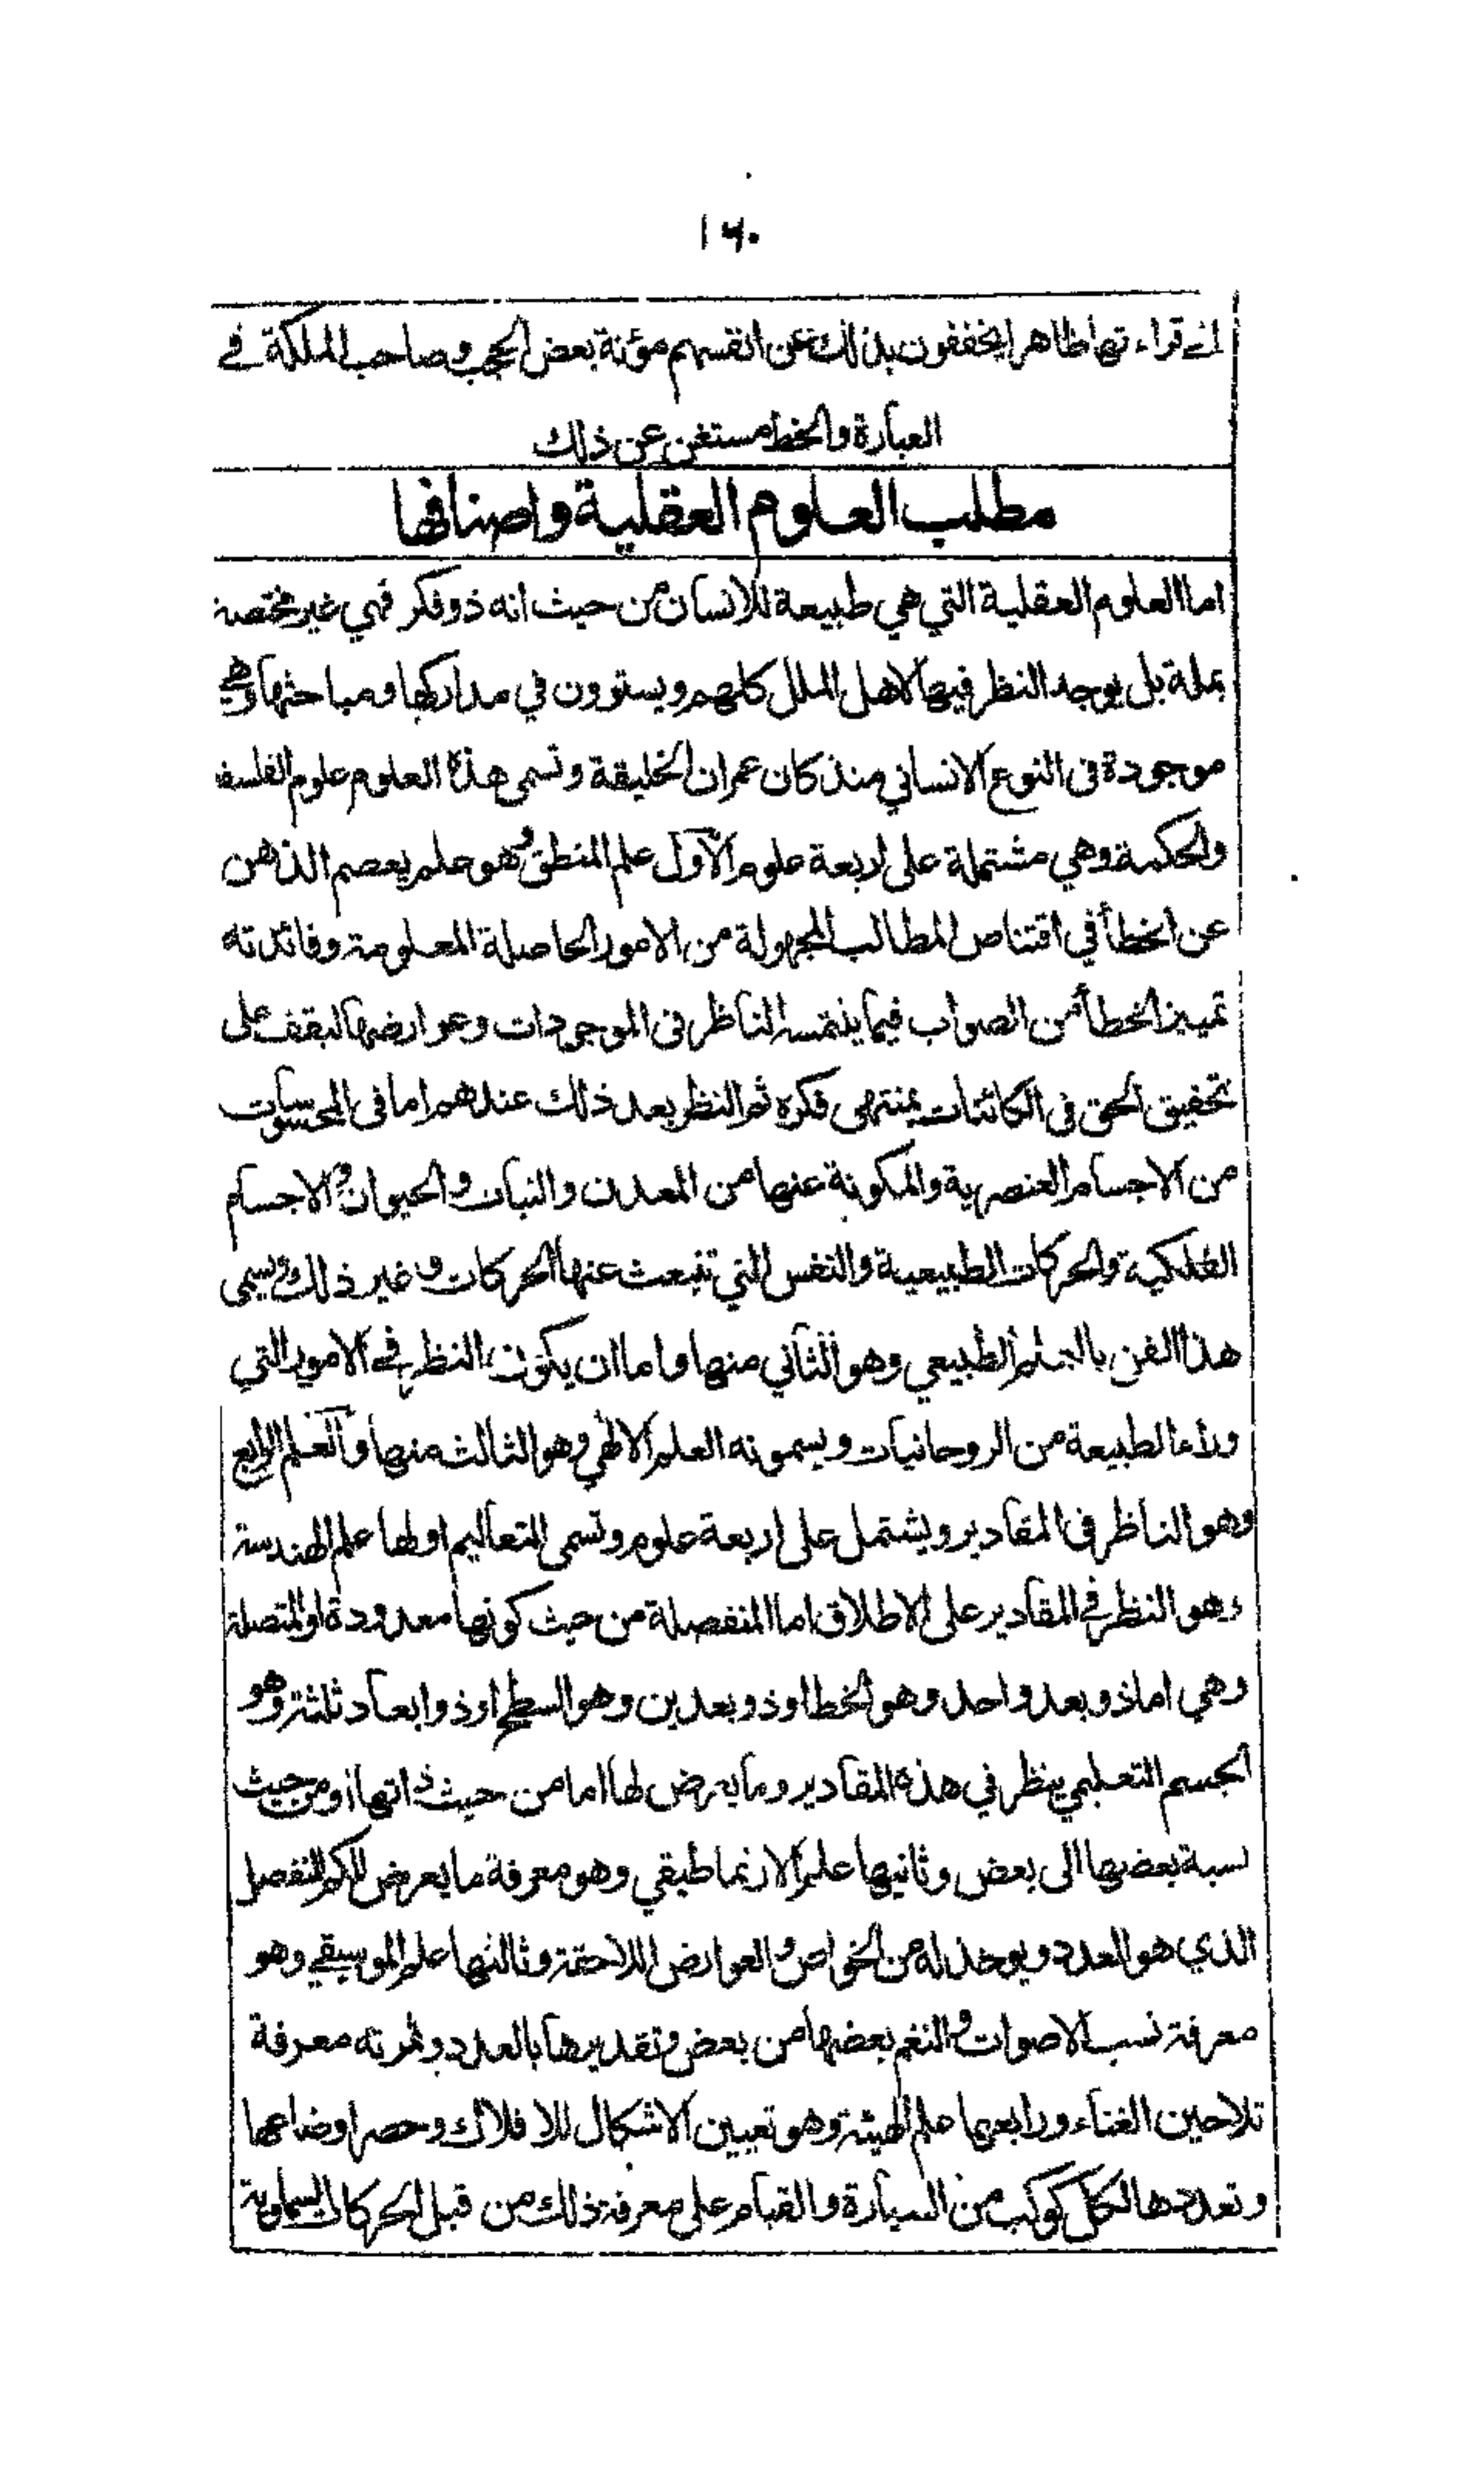 ١٦٠
اني قراءتها ظاهرا يخففون بذلك عن انفسهم مؤنة بعض الحجب وصاحب الملكة في
العبارة والخط مستغن عن ذلك
مطلب العلوم العقلية واصنافها
اما العلوم العقلية التي هي طبيعة للانسان من حيث انه ذو فكر فهي غير مختصة
بملة بل يوجد النظر فيها لاهل الملل كلهم ويستوون في مداركها ومباحثها وهي
موجودة في النوع الانساني منذ كان عمران الخليقة وتسمى هذه العلوم علوم الفلسفة
والحكمة وهي مشتملة على اربعة علوم الاول علم المنطق وهو علم يعصم الذهن
عن الخطأ في اقتناص المطالب المجهولة من الامور الحاصلة المعلومة وفائدته
تمييز الخطأ من الصواب فيما يلتمسه الناظر في الموجودات وعوارضها ليقف على
تحقيق الحق في الكائنات بمنتهى فكره ثم النظر بعد ذلك عندهم اما في المحسوسات
من الاجسام العنصرية والمكونة عنها من المعدن والنبات والحيوان والاجسام
الفلكية والحركات الطبيعية والنفس التي تنبعث عنها الحركات وغير ذلك ويسمى
هذا الفن بالعلم الطبيعي وهو الثاني منها واما ان يكون النظر في الامور التي
وراء الطبيعة من الروحانيات ويسمونه العلم الالهي وهو الثالث منها والعلم الرابع
وهو الناظر في المقادير ويشتمل على اربعة علوم وتسمى التعاليم اولها علم الهندسة
وهو النظر في المقادير على الاطلاق اما المنفصلة من حيث كونها معدودة او المتصلة
وهي اما ذو بعد واحد وهو الخط او ذو بعدين وهو السطح او ذو ابعاد ثلثة وهو
الجسم التعليمي ينظر في هذه المقادير وما يعرض لها اما من حيث ذاتها او من حيث
نسبة بعضها الى بعض وثانيها علم الارتماطيقي وهو معرفة ما يعرض للكم المنفصل
الذي هو العدد ويوخذ له من الخواص والعوارض اللاحقة وثالثها علم الموسيقي وهو
معرفة نسب الاصوات والنغم بعضها من بعض وتقديرها بالعدد وثمرته معرفة
تلاحين الغناء ورابعها علم الهيئة وهو تعيين الاشكال للافلاك وحصر اوضاعها
وتعددها لكل كوكب من السيارة والقيام على معرفة ذلك من قبل الحركات السماوية